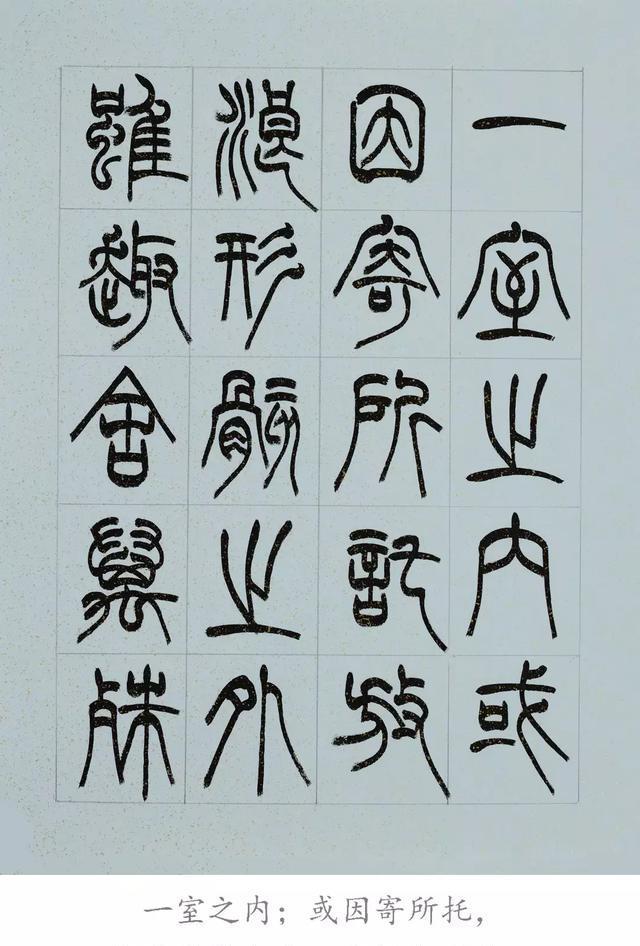 一室之内或
因寄所託放
浪形骸之外
雖趣舍萬殊
一室之内；或因寄所托，